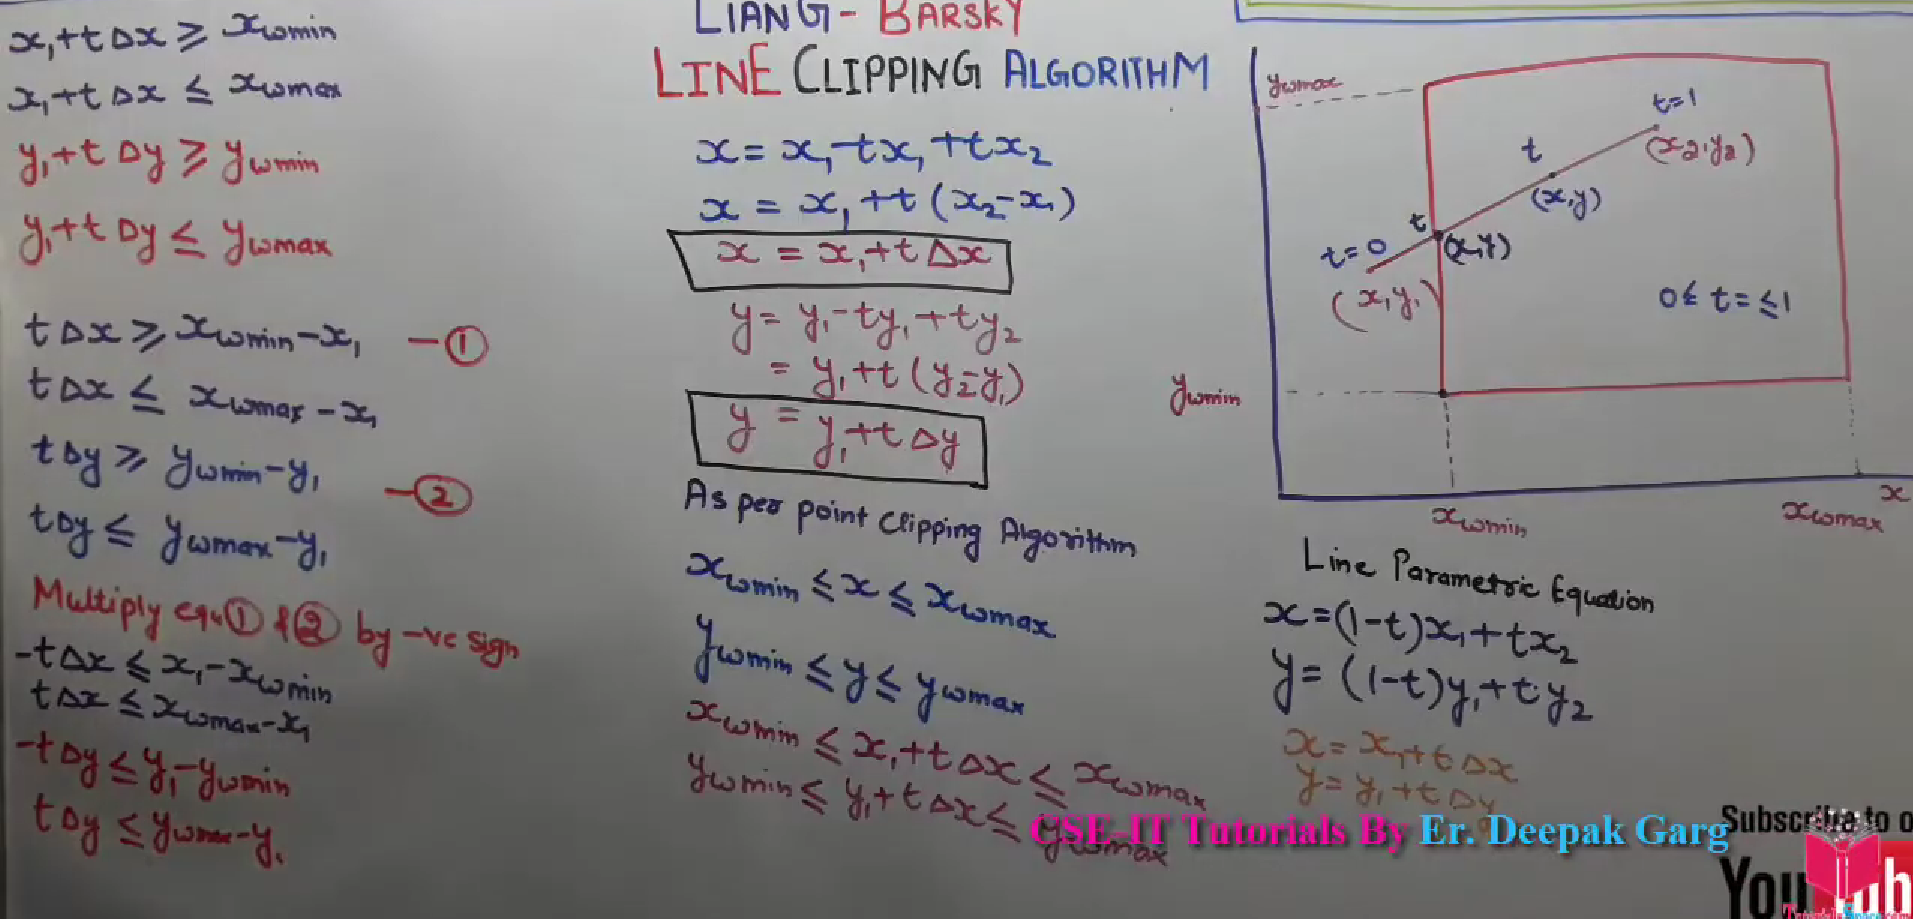 x₁+tΔx ≥ xwmin
x₁+tΔx ≤ xwmax
y₁+tΔy ≥ ywmin
y₁+tΔy ≤ ywmax
tΔx ≥ xwmin-x₁ -①
tΔx ≤ xwmax-x₁
tΔy ≥ ywmin-y₁ -②
tΔy ≤ ywmax-y₁
Multiply equ ① & ② by -ve sign
-tΔx ≤ x₁-xwmin
tΔx ≤ xwmax-x₁
-tΔy ≤ y₁-ywmin
tΔy ≤ ywmax-y₁
LIANG-BARSKY
LINE CLIPPING ALGORITHM
x = x₁-tx₁+tx₂
x = x₁+t(x₂-x₁)
x = x₁+tΔx
y = y₁-ty₁+ty₂
= y₁+t(y₂-y₁)
y = y₁+tΔy
As per point clipping Algorithm
xwmin ≤ x ≤ xwmax
ywmin ≤ y ≤ ywmax
xwmin ≤ x₁+tΔx ≤ xwmax
ywmin ≤ y₁+tΔx ≤ ywmax
ywmax
t=1
(x₂,y₂)
t
(x,y)
t
(x,y)
t=0
(x,y₁)
0≤ t=≤1
ywmin
xwmin
xwmax
x
Line Parametric Equation
x=(1-t)x₁+tx₂
y=(1-t)y₁+ty₂
x=x₁+tΔx
y=y₁+tΔy
CSE-IT Tutorials By Er. Deepak Garg
Subscribe to o